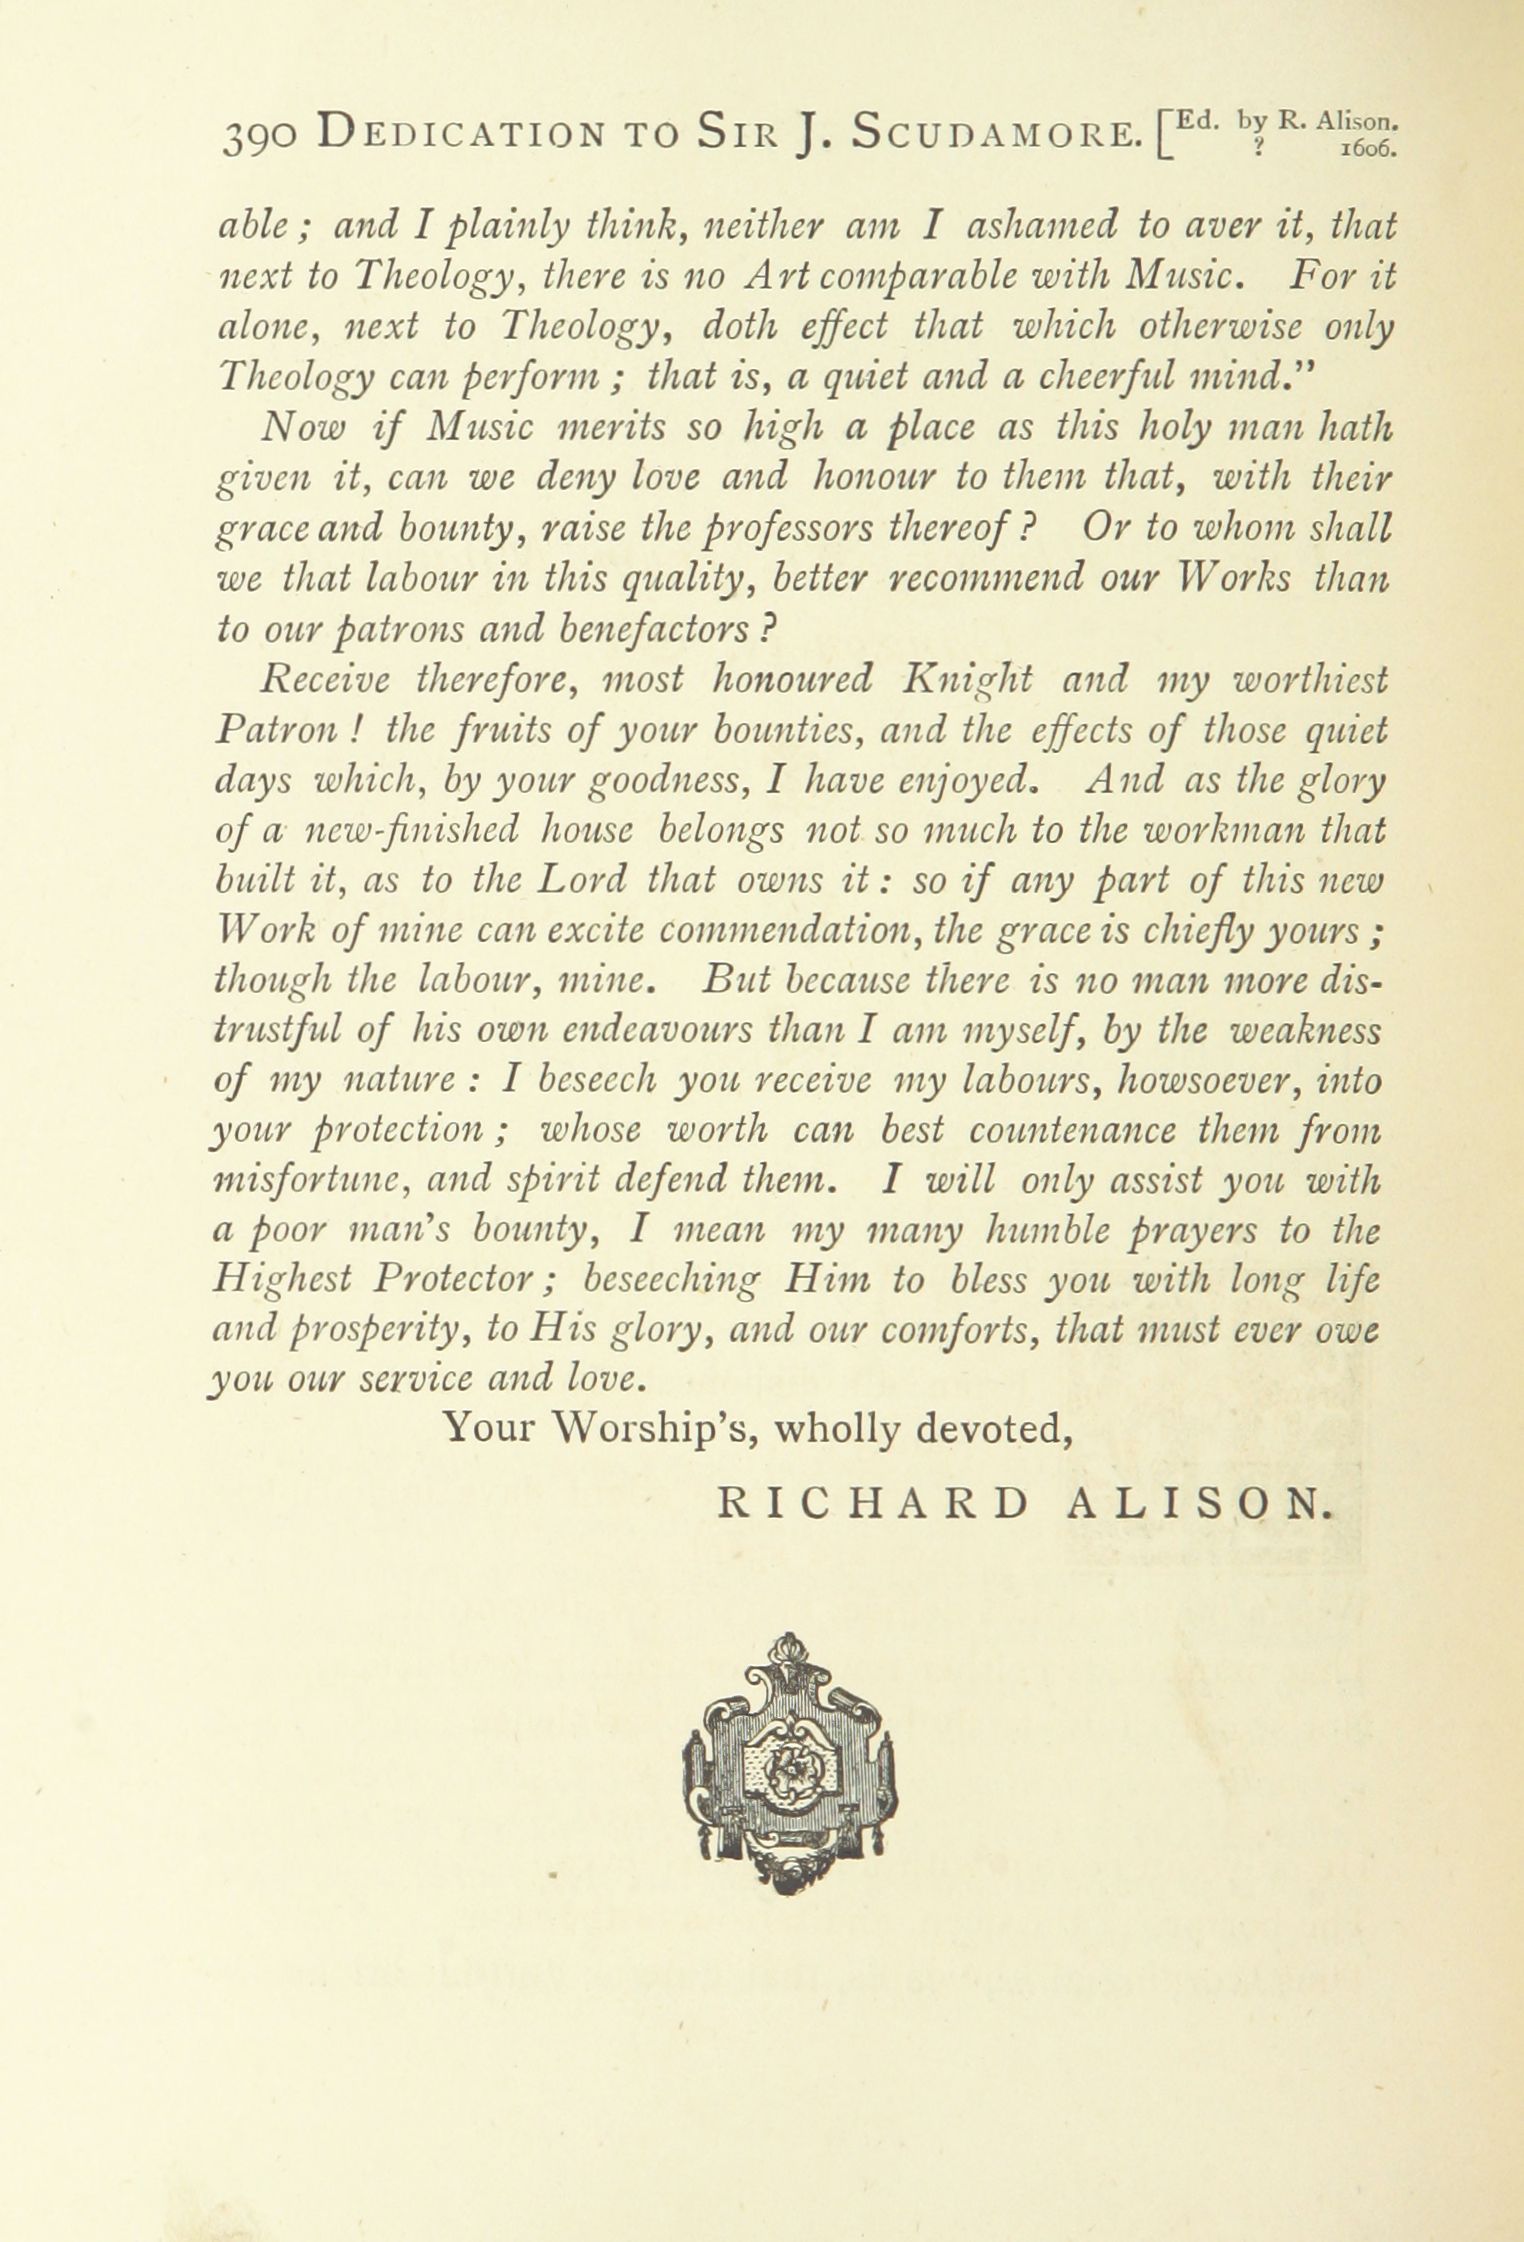 390 DEDICATION TO SIR J. SCUDAMORE. [Ed. by R. Alison.
? 1606.
able ; and I plainly think, neither am I ashamed to aver it, that
next to Theology, there is no Art comparable with Music. For it
alone, next to Theology, doth effect that which otherwise only
Theology can perform ; that is, a quiet and a cheerful mind."
Now if Music merits so high a place as this holy man hath
given it, can we deny love and honour to them that, with their
grace and bounty, raise the professors thereof ? Or to whom shall
we that labour in this quality, better recommend our Works than
to our patrons and benefactors ?
Receive therefore, most honoured Knight and my worthiest
Patron ! the fruits of your bounties, and the effects of those quiet
days which, by your goodness, I have enjoyed. And as the glory
of a new-finished house belongs not so much to the workman that
built it, as to the Lord that owns it : so if any part of this new
Work of mine can excite commendation, the grace is chiefly yours ;
though the labour, mine. But because there is no man more dis-
trustful of his own endeavours than I am myself, by the weakness
of my nature : I beseech you receive my labours, howsoever, into
your protection ; whose worth can best countenance them from
misfortune, and spirit defend them. I will only assist you with
a poor man's bounty, I mean my many humble prayers to the
Highest Protector ; beseeching Him to bless you with long life
and prosperity, to His glory, and our comforts, that must ever owe
you our service and love.
Your Worship's, wholly devoted,
RICHARD ALISON.